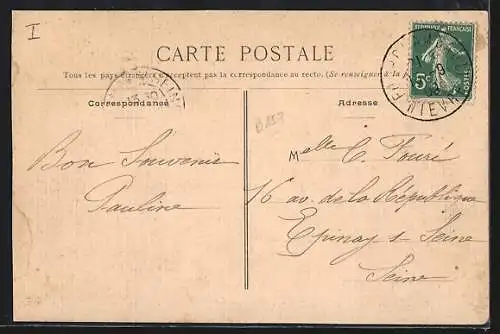 I
CARTE POSTALE
Tous les pays étrangers n'acceptent pas la correspondance au recto. (Se renseigner à la
Correspondance
Adresse
RÉPUBLIQUE FRANÇAISE
5c
POSTES
Bon Souvenir
Pauline
Melle C. Fouré
16 av. de la République
Epinay s Seine
Seine